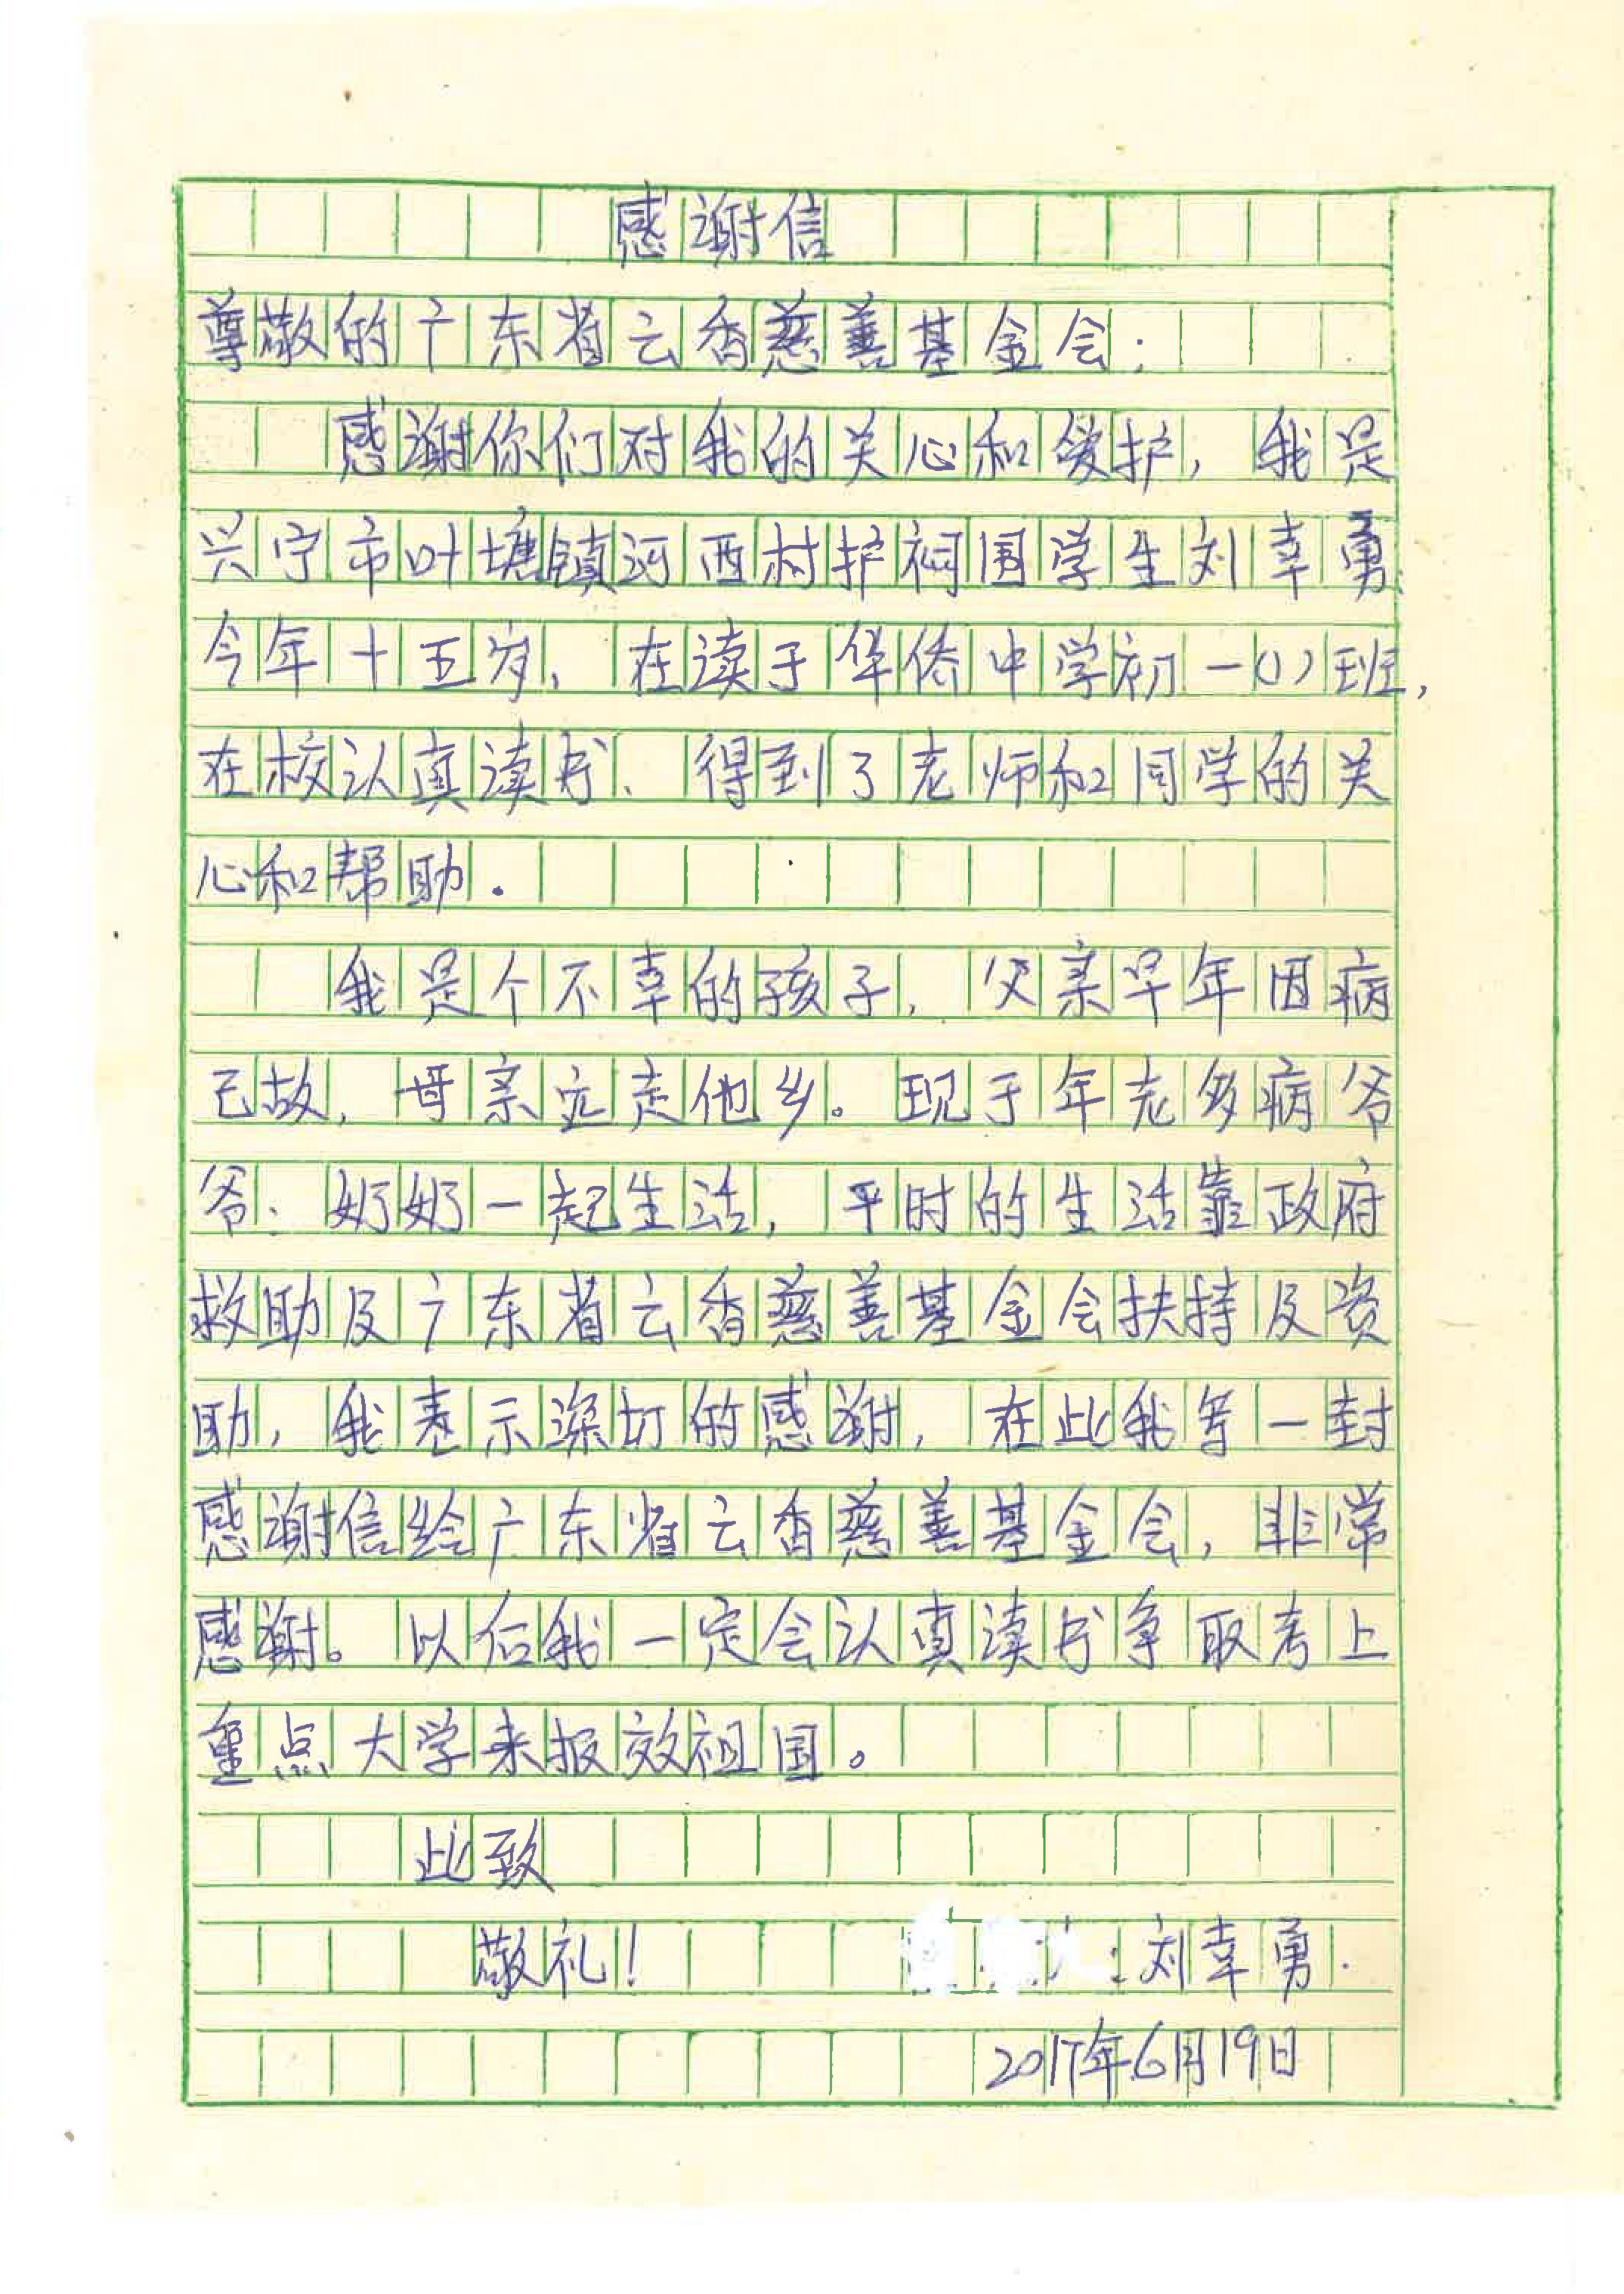 感谢信
尊敬的广东省云香慈善基金会:
感谢你们对我的关心和爱护,我是
兴宁市叶塘镇河西村护祠围学生刘幸勇
今年十五岁,在读于华侨中学初一(1)班,
在校认真读书、得到了老师和同学的关
心和帮助.
我是个不幸的孩子,父亲早年因病
已故,母亲远走他乡。现于年老多病爷
爷、奶奶一起生活,平时的生活靠政府
救助及广东省云香慈善基金会扶持及资
助,我表示深切的感谢,在此我写一封
感谢信给广东省云香慈善基金会,非常
感谢。以后我一定会认真读书争取考上
重点大学来报效祖国。
此致
敬礼! 人:刘幸勇.
2017年6月19日